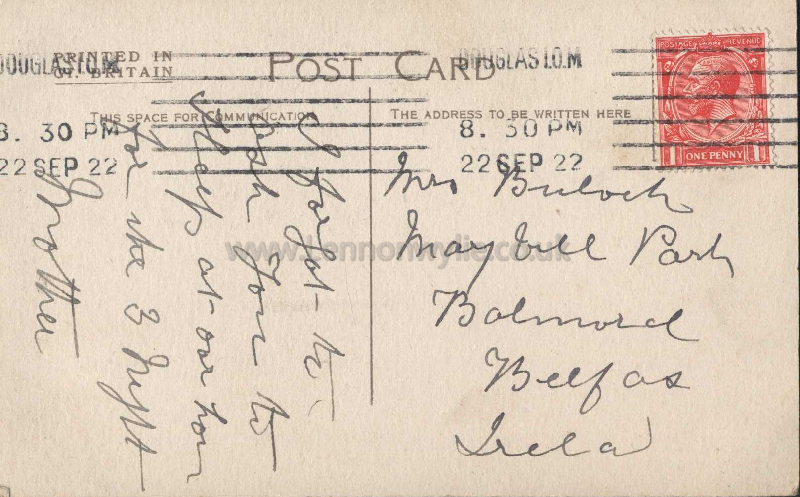 DOUGLAS I.O.M
DOUGLAS I.O.M
PRINTED IN
GT BRITAIN
POST CARD
THIS SPACE FOR COMMUNICATION
THE ADDRESS TO BE WRITTEN HERE
8. 30 PM
22 SEP 22
8. 30 PM
22 SEP 22
POSTAGE REVENUE
1 ONE PENNY 1
I forgot to
ask you to
sleep at our hou
for the 3 night
Mother
Mrs Buloch
May vill Park
Balmoral
Belfas
Irela
www.Lennonwylie.co.uk